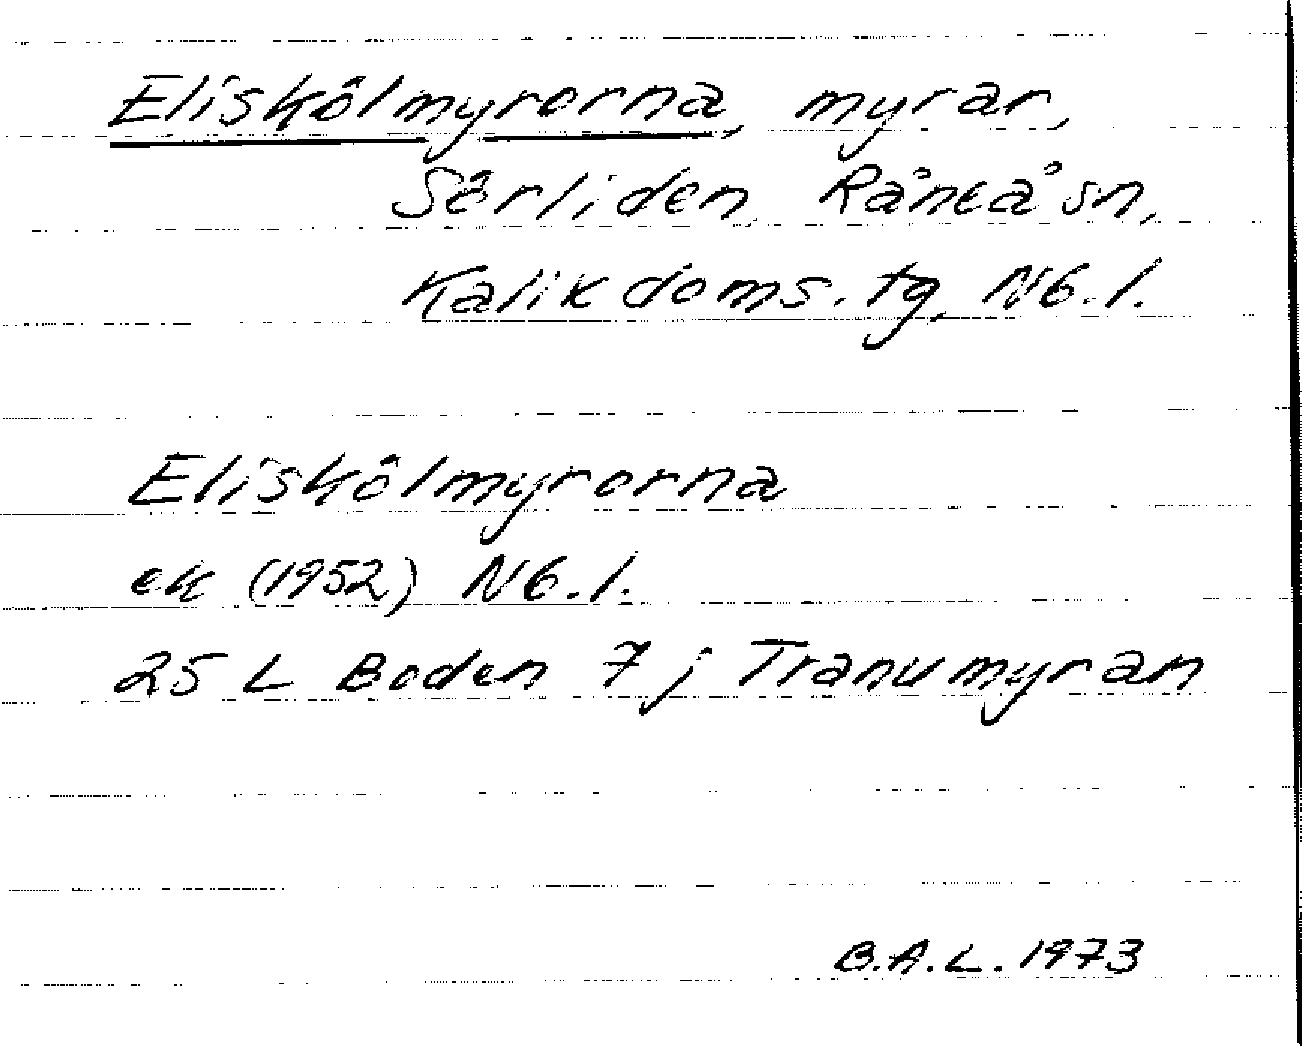 Eliskölmyrorna, myrar,
Sörliden, Råneå sn,
Kalix doms. tg, Nb. l.
Eliskölmyrorna
ek (1952) Nb. l.
25 L Boden 7 j Tranumyran
B.A.L. 1973